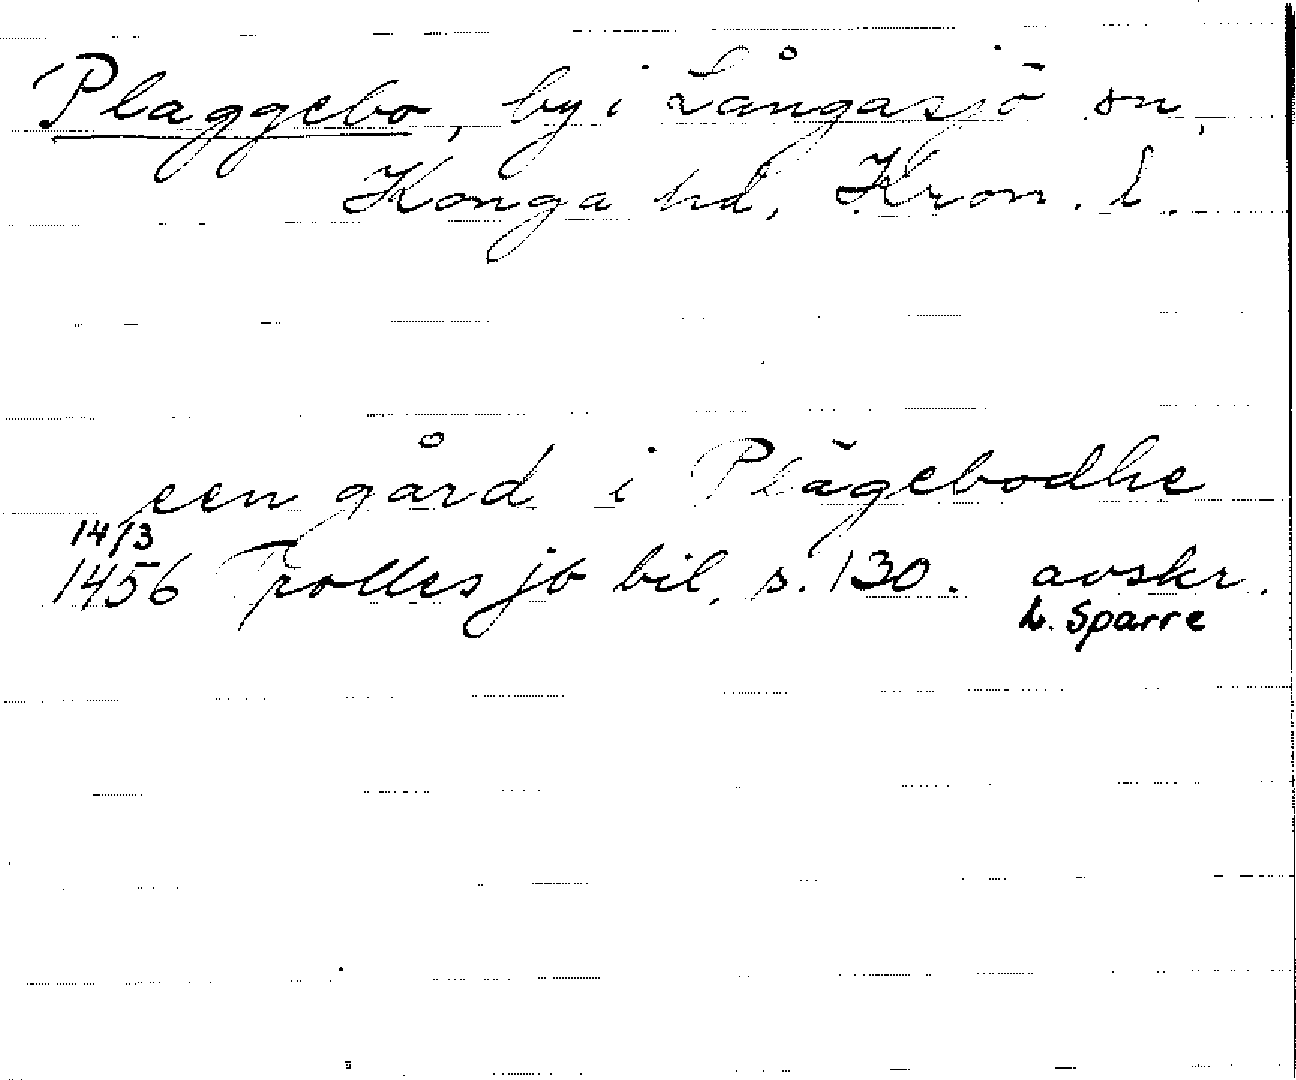 Plaggebo, by i Långasjö sn,
Konga hd, Kron. l.
een gård i Plägebodhe
14/3
1456 Trolles jb bil. s. 130. avskr.
L. Sparre